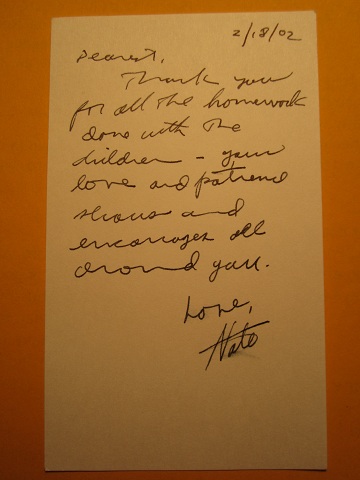 2/18/02
Dearest,
Thank you
for all the homework
done with the
children - your
love and patience
shows and
encourages all
around you.
Love,
Nate